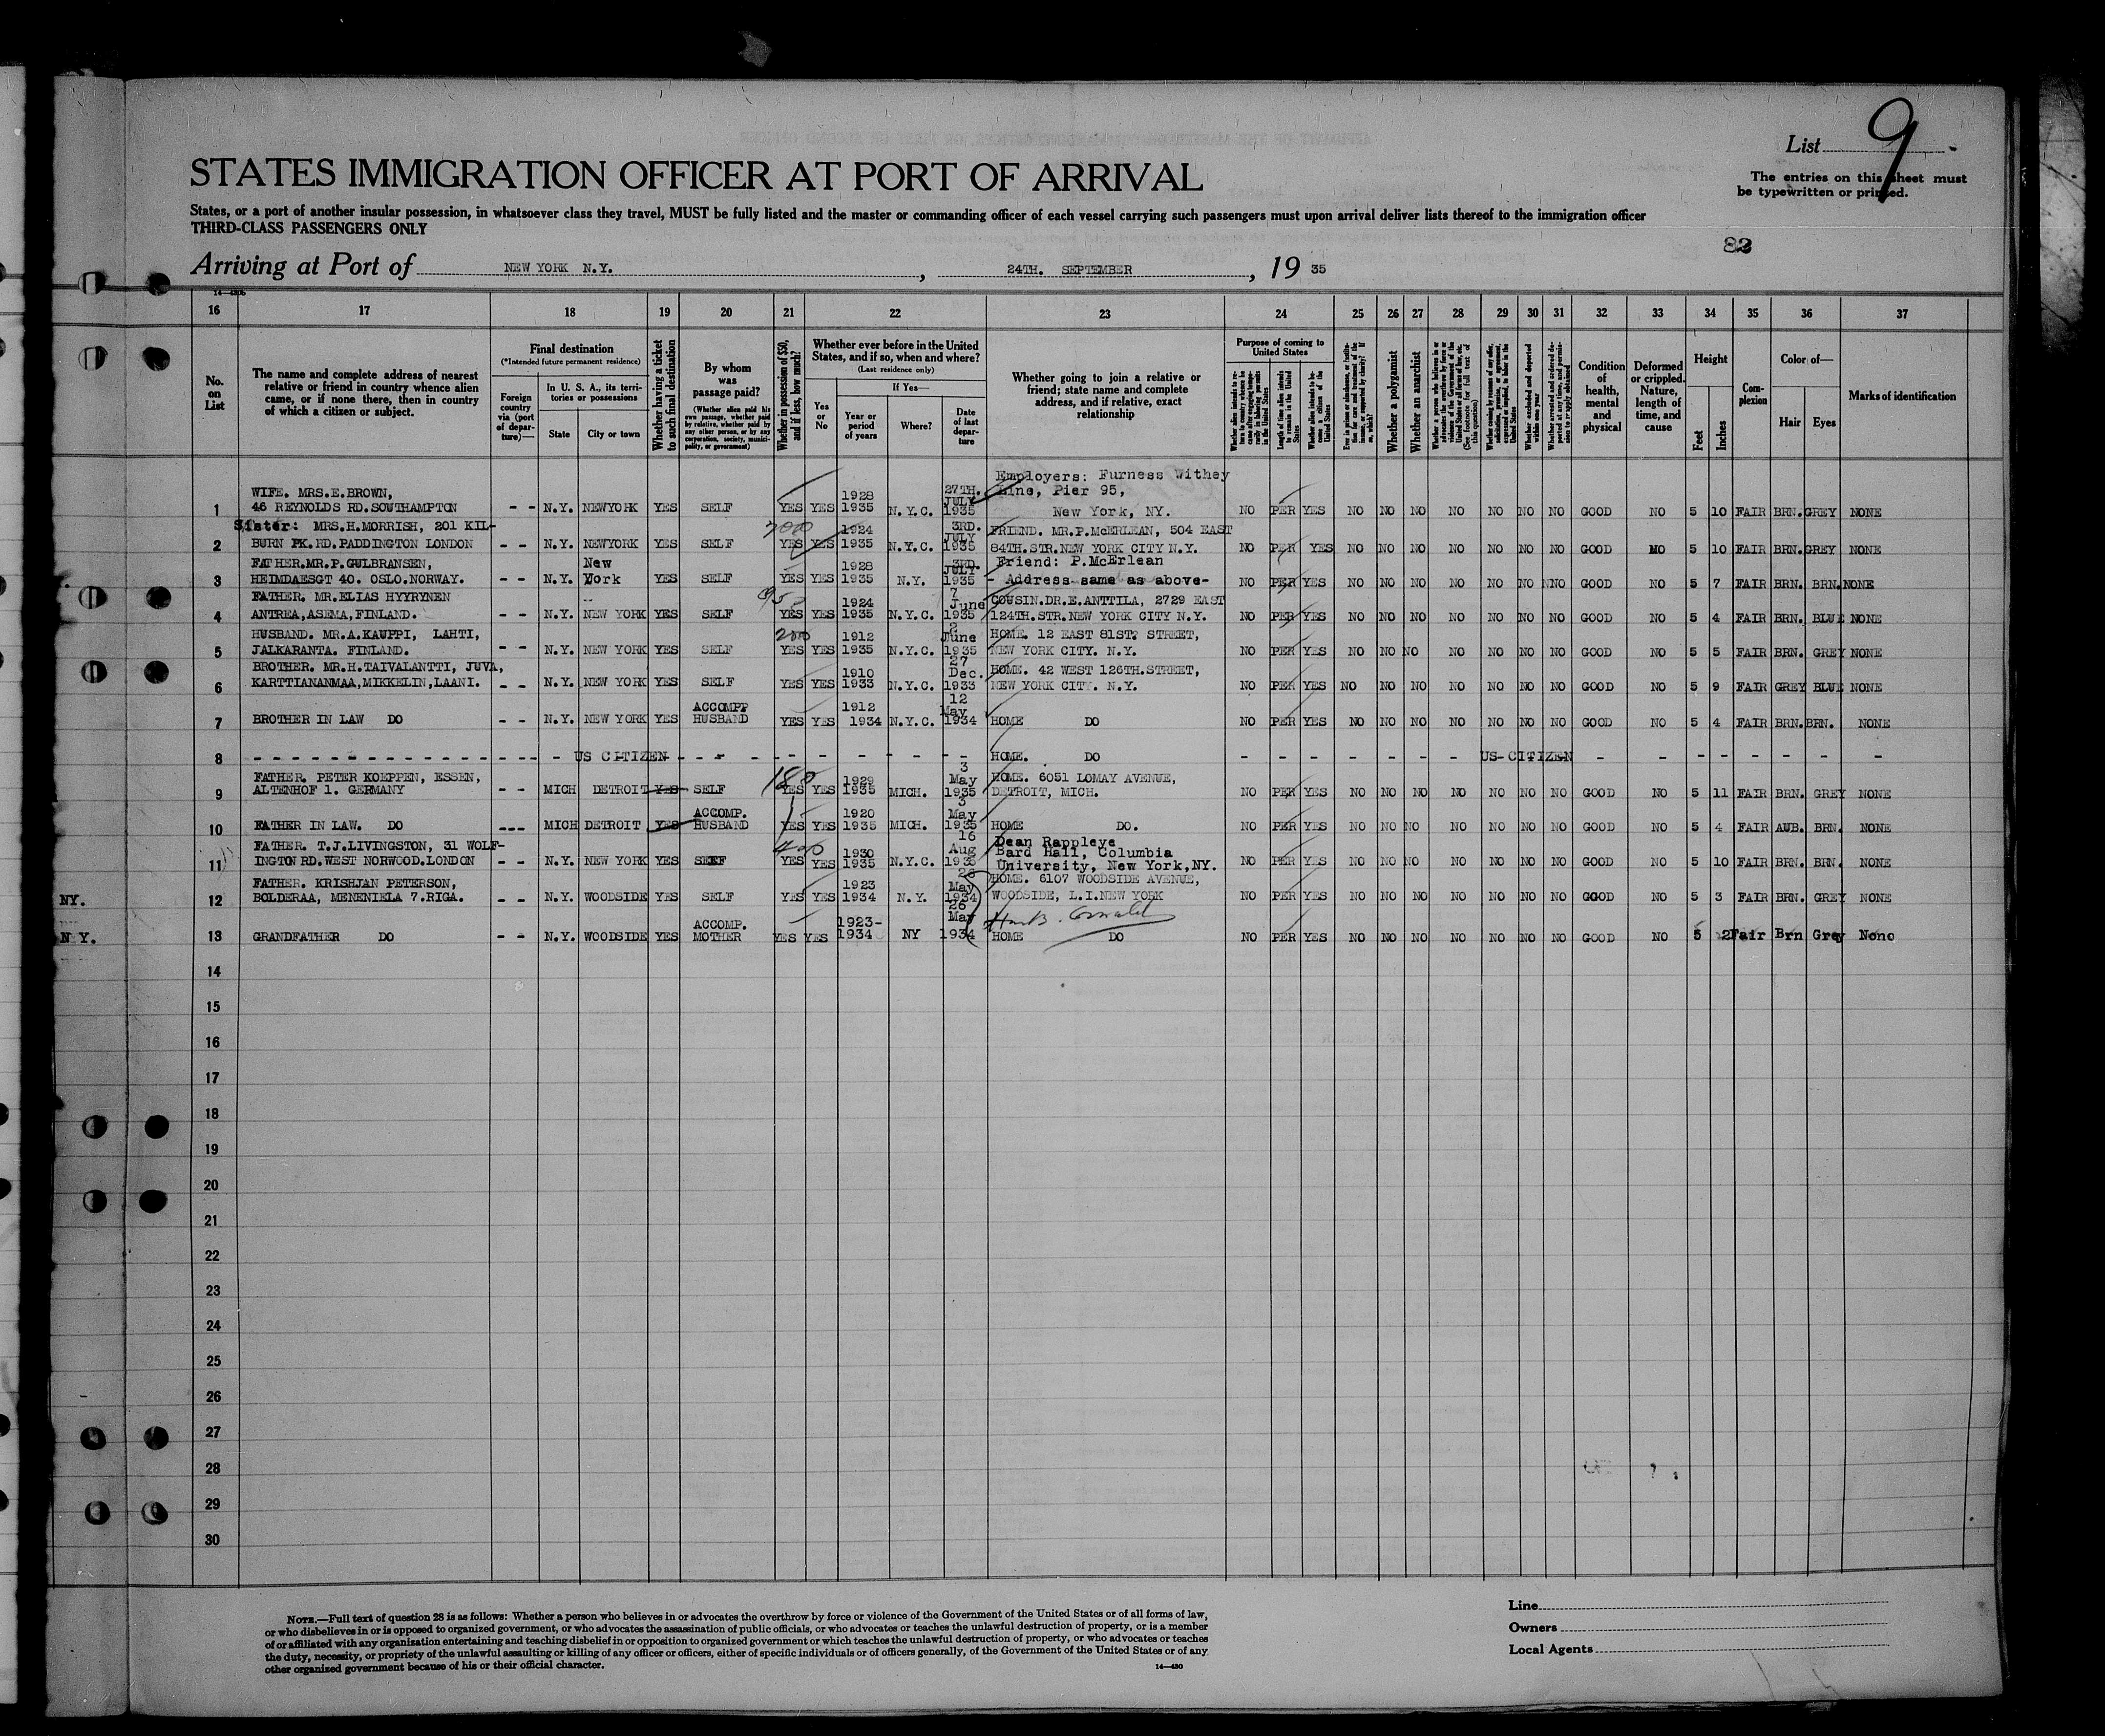 List 9
The entries on this sheet must
be typewritten or printed.
STATES IMMIGRATION OFFICER AT PORT OF ARRIVAL
States, or a port of another insular possession, in whatsoever class they travel, MUST be fully listed and the master or commanding officer of each vessel carrying such passengers must upon arrival deliver lists thereof to the immigration officer
THIRD-CLASS PASSENGERS ONLY
Arriving at Port of NEW YORK N.Y. , 24TH. SEPTEMBER , 19 35
16 17 18 19 20 21 22 23 24 25 26 27 28 29 30 31 32 33 34 35 36 37
No. on List
The name and complete address of nearest
relative or friend in country whence alien
came, or if none there, then in country
of which a citizen or subject.
Final destination
(*Intended future permanent residence)
Foreign country via (port of departure)—
In U. S. A., its territories or possessions
State
City or town
Whether having a ticket to such final destination
By whom was passage paid?
(Whether alien paid his own passage, whether paid by relative, whether paid by any other person, or by any corporation, society, municipality, or government)
Whether in possession of $50, and if less, how much?
Whether ever before in the United
States, and if so, when and where?
(Last residence only)
Yes or No
If Yes—
Year or period of years
Where?
Date of last departure
Whether going to join a relative or
friend; state name and complete
address, and if relative, exact
relationship
Purpose of coming to United States
Whether a polygamist
Whether an anarchist
Condition of health, mental and physical
Deformed or crippled. Nature, length of time, and cause
Height
Feet
Inches
Complexion
Color of—
Hair
Eyes
Marks of identification
Employers: Furness Withey
WIFE. MRS.E.BROWN, 1928 27TH. JULY Line, Pier 95,
1 46 REYNOLDS RD.SOUTHAMPTON - - N.Y. NEWYORK YES SELF YES YES 1935 N.Y.C. 1935 New York, NY. NO PER YES NO NO NO NO NO NO NO GOOD NO 5 10 FAIR BRN. GREY NONE
Sister: MRS.H.MORRISH, 201 KIL- 1924 3RD. JULY FRIEND. MR.P.McERLEAN, 504 EAST
2 BURN PK.RD.PADDINGTON LONDON - - N.Y. NEWYORK YES SELF YES YES 1935 N.Y.C. 1935 84TH.STR.NEW YORK CITY N.Y. NO PER YES NO NO NO NO NO NO NO GOOD NO 5 10 FAIR BRN. GREY NONE
FATHER.MR.P.GULBRANSEN, New 1928 3RD. JULY Friend: P.McErlean
3 HEIMDAESGT 40. OSLO.NORWAY. - - N.Y. York YES SELF YES YES 1935 N.Y. 1935 - Address same as above- NO PER YES NO NO NO NO NO NO NO GOOD NO 5 7 FAIR BRN. BRN. NONE
FATHER. MR.ELIAS HYYRYNEN 1924 7 June COUSIN.DR.E.ANTTILA, 2729 EAST
4 ANTREA,ASEMA,FINLAND. - - N.Y. NEW YORK YES SELF YES YES 1935 N.Y.C. 1935 124TH.STR.NEW YORK CITY N.Y. NO PER YES NO NO NO NO NO NO NO GOOD NO 5 4 FAIR BRN. BLUE NONE
HUSBAND. MR.A.KAUPPI, LAHTI, 200 1912 2 June HOME. 12 EAST 81ST. STREET,
5 JALKARANTA. FINLAND. - - N.Y. NEW YORK YES SELF YES YES 1935 N.Y.C. 1935 NEW YORK CITY. N.Y. NO PER YES NO NO NO NO NO NO NO GOOD NO 5 5 FAIR BRN. GREY NONE
BROTHER. MR.H.TAIVALANTTI, JUVA, 1910 27 Dec. HOME. 42 WEST 126TH.STREET,
6 KARTTIANANMAA,MIKKELIN,LAANI. - - N.Y. NEW YORK YES SELF YES YES 1933 N.Y.C. 1933 NEW YORK CITY. N.Y. NO PER YES NO NO NO NO NO NO NO GOOD NO 5 9 FAIR GREY BLUE NONE
ACCOMP. 1912 12 May
7 BROTHER IN LAW DO - - N.Y. NEW YORK YES HUSBAND YES YES 1934 N.Y.C. 1934 HOME DO NO PER YES NO NO NO NO NO NO NO GOOD NO 5 4 FAIR BRN. BRN. NONE
8 - - - US CITIZEN - - - HOME. DO - - - US-CITIZEN - - -
FATHER. PETER KOEPPEN, ESSEN, 180 1929 3 May HOME. 6051 LOMAY AVENUE,
9 ALTENHOF 1. GERMANY - - MICH DETROIT YES SELF YES YES 1935 MICH. 1935 DETROIT, MICH. NO PER YES NO NO NO NO NO NO NO GOOD NO 5 11 FAIR BRN. GREY NONE
ACCOMP. 1920 3 May
10 FATHER IN LAW. DO --- MICH DETROIT YES HUSBAND YES YES 1935 MICH. 1935 HOME DO. NO PER YES NO NO NO NO NO NO NO GOOD NO 5 4 FAIR AUB. BRN. NONE
FATHER. T.J.LIVINGSTON, 31 WOLF- 400 1930 16 Aug Dean Rappleye Bard Hall, Columbia
11 INGTON RD.WEST NORWOOD.LONDON - - N.Y. NEW YORK YES SELF YES YES 1935 N.Y.C. 1935 University, New York,NY. NO PER YES NO NO NO NO NO NO NO GOOD NO 5 10 FAIR BRN. BRN. NONE
FATHER. KRISHJAN PETERSON, 1923 26 May HOME. 6107 WOODSIDE AVENUE,
NY. 12 BOLDERAA, MENENIELA 7.RIGA. - - N.Y. WOODSIDE YES SELF YES YES 1934 N.Y. 1934 WOODSIDE, L.I.NEW YORK NO PER YES NO NO NO NO NO NO NO GOOD NO 5 3 FAIR BRN. GREY NONE
ACCOMP. 1923- 26 May
N.Y. 13 GRANDFATHER DO - - N.Y. WOODSIDE YES MOTHER YES YES 1934 NY 1934 HOME DO NO PER YES NO NO NO NO NO NO NO GOOD NO 5 2 Fair Brn Grey None
14
15
16
17
18
19
20
21
22
23
24
25
26
27
28
29
30
NOTE.—Full text of question 28 is as follows: Whether a person who believes in or advocates the overthrow by force or violence of the Government of the United States or of all forms of law,
or who disbelieves in or is opposed to organized government, or who advocates the assassination of public officials, or who advocates or teaches the unlawful destruction of property, or is a member
of or affiliated with any organization entertaining and teaching disbelief in or opposition to organized government or which teaches the unlawful destruction of property, or who advocates or teaches
the duty, necessity, or propriety of the unlawful assaulting or killing of any officer or officers, either of specific individuals or of officers generally, of the Government of the United States or of any
other organized government because of his or their official character.
14—430
Line
Owners
Local Agents